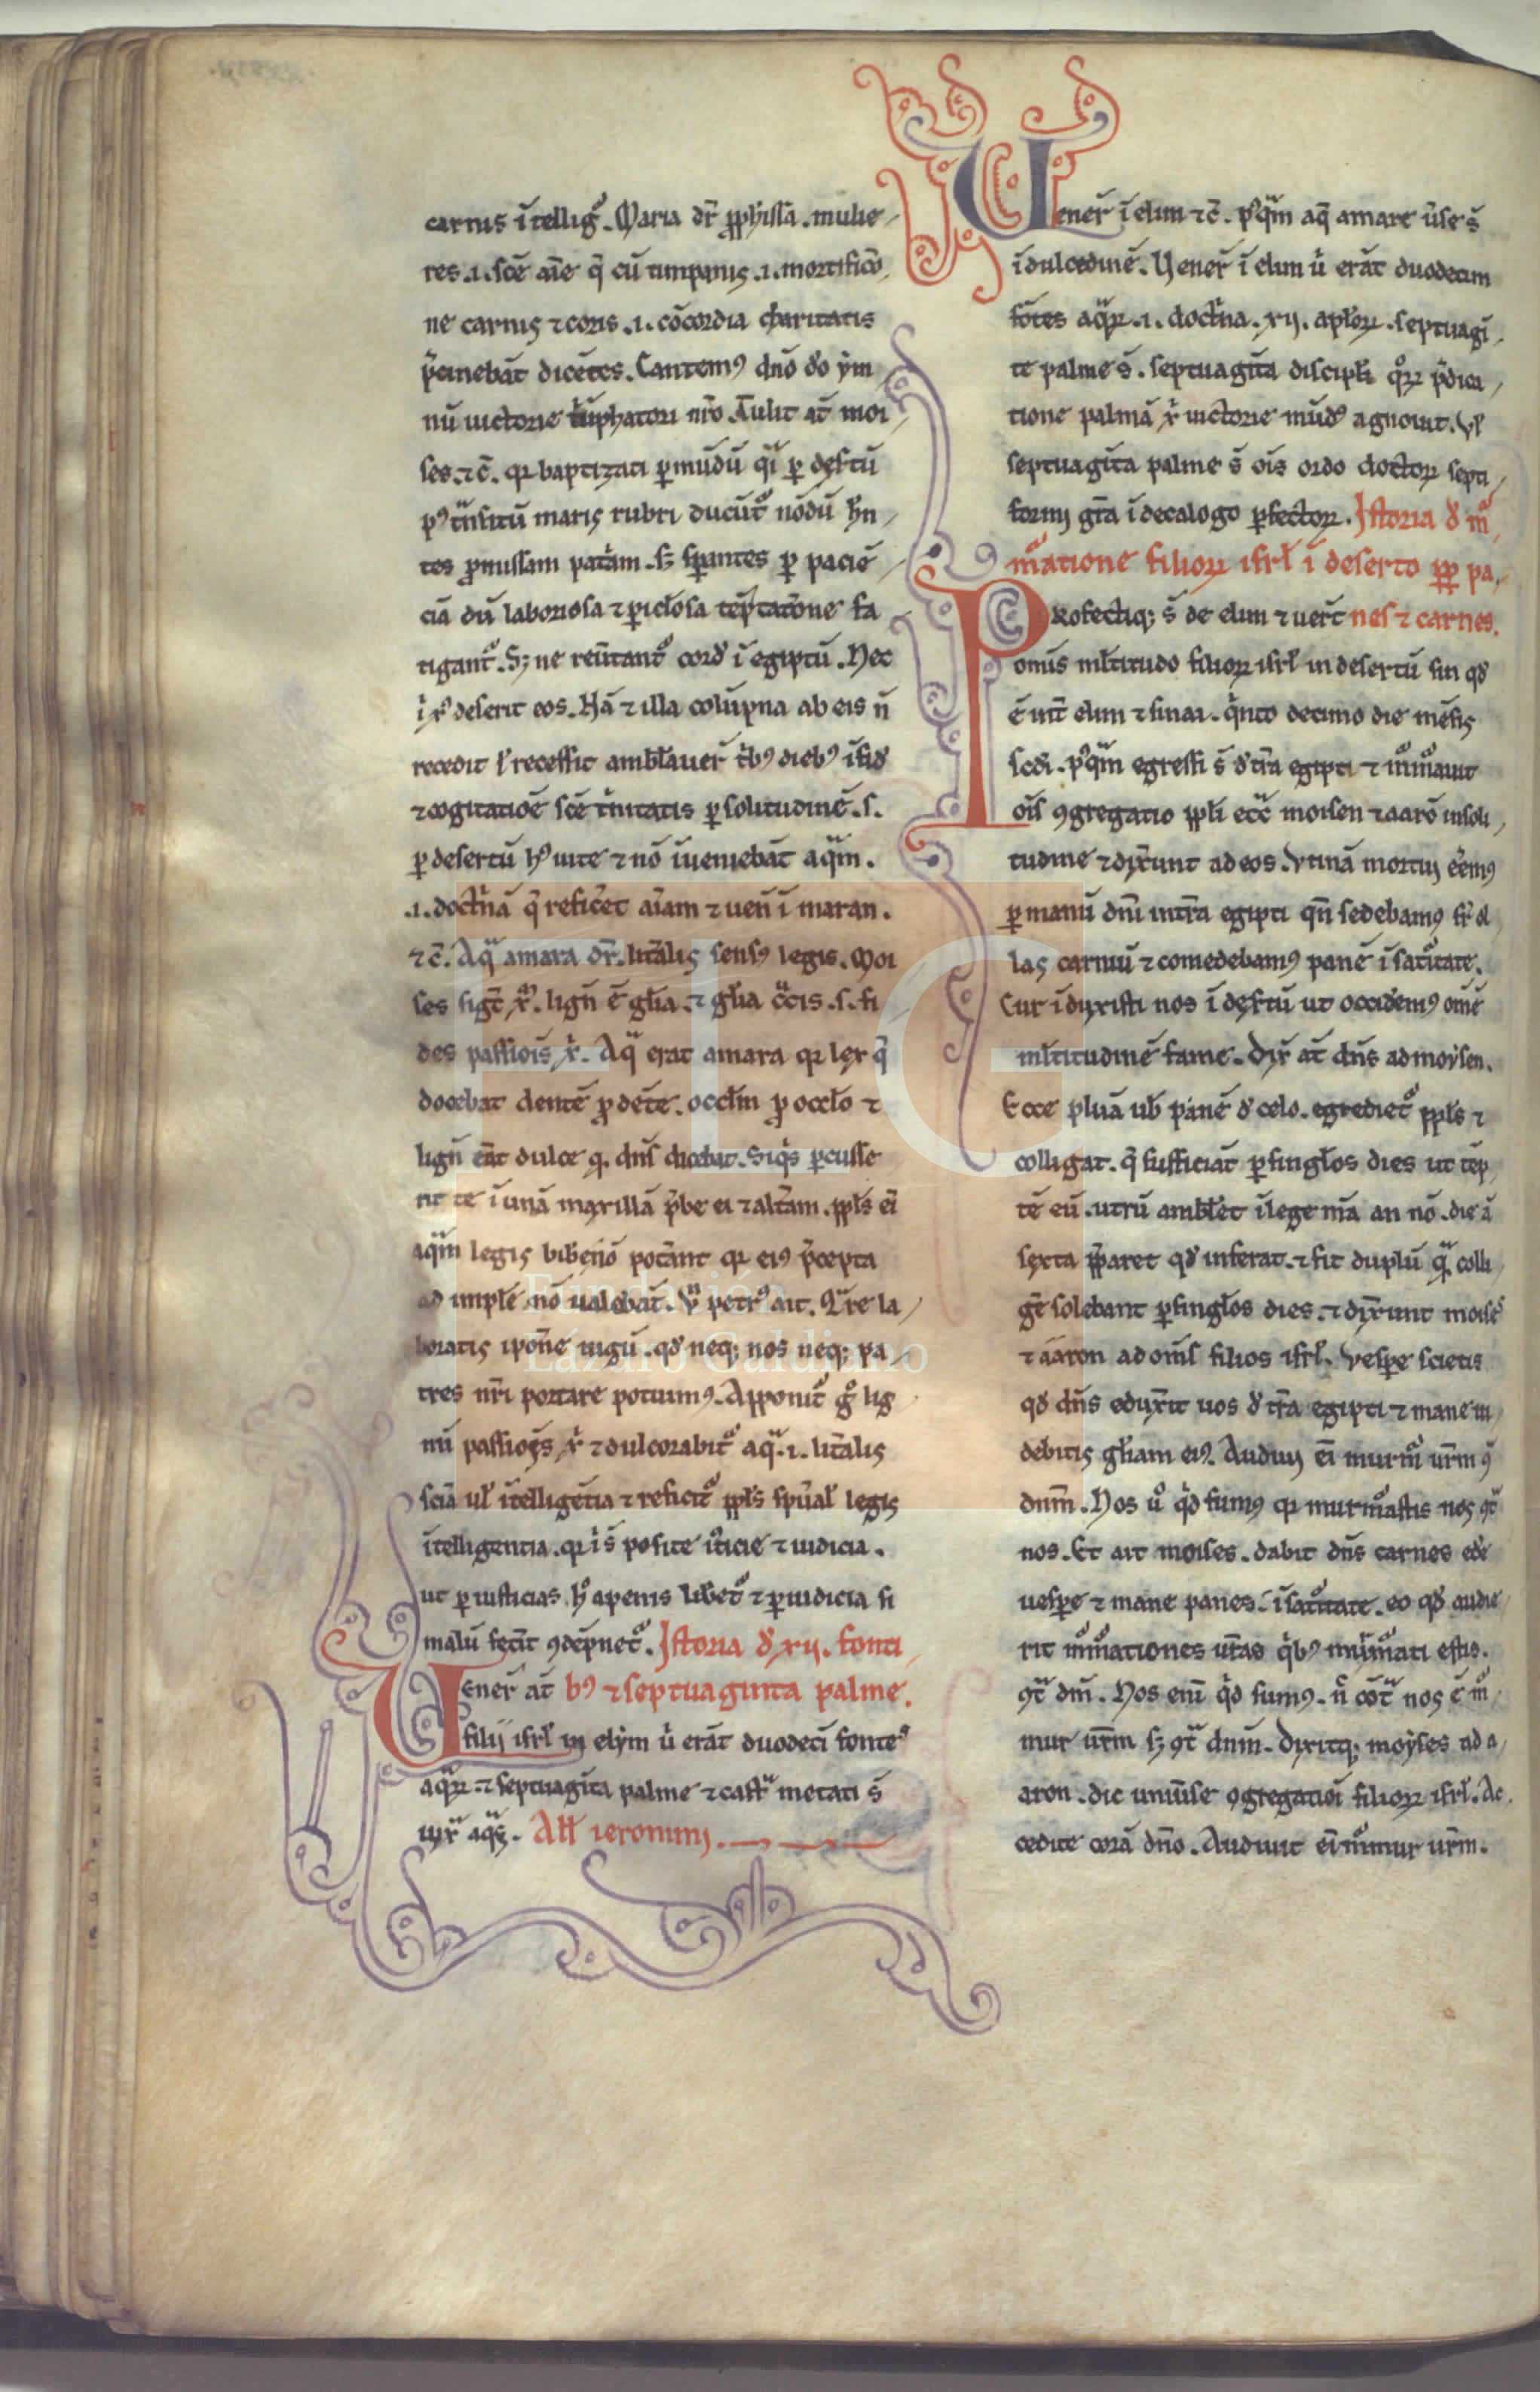 carnus ĩtelligͬ. Maria dr̃ ꝓphissã. mulie
res .i. scẽ aĩe q̃ cũ timpanis .i. mortificõ
ne carnis ⁊ coris .i. cõcordia charitatis
p̃cinebãt dicẽtes. Cantemꝰ dño do ẏm
nũ uictorie triũphatori nr̃o. Tulit at̃ moi
ses. ⁊c̃. qr baptizati ꝑ mũdũ q̃i ꝑ desertũ
pꝰ tñsitũ maris rubri ducũt᷑ nõdũ hñ
tes ꝓmissam patͥam. sꝫ spantes ꝑ paciẽ
ciã dũ laboriosa ⁊ ꝑiclosa tẽptatõne fa
tigant᷑. Sꝫ ne reũtant᷑ cord ĩ egiptũ. Nec
ihꝰ deserit eos. Nã ⁊ illa colũpna ab eis ñ
recedit l recessit amblauer̃ tͥbꝰ diebꝰ ĩ fid
⁊ cogitatiõẽ scẽ tͥnitatis ꝑ solitudinẽ .s.
ꝑ desertũ hꝰ uite ⁊ nõ ĩueniebãt aqͣm.
.i. doctͥnã q̃ reficet aĩam ⁊ ueñ ĩ maran.
⁊c̃. Aqͣ amara dr̃. litãlis sensꝰ legis. Moi
ses sigt̃ xͫ. ligñ ẽ glia. ⁊ glia cͣcis .s. fi
des passiois xͥ. Aqͣ erat amara qr lex q̃
docebat dentẽ ꝓ dẽte. occlm ꝓ occlo ⁊
ligñ erãt dulce q. dñs dicebat. Siqͥs ꝑcusse
rit te ĩ unã maxillã p̃be ei ⁊ altãm. ppls eĩ
aqͣm legis bibe nõ potãnt qr eiꝰ p̃cepta
ad imple nõ ualebãt. Vñ petrꝰ ait. Qͣre la
boratis ipõne iugũ. qd neqꝫ nos neqꝫ pa
tres nr̃i portare potuimꝰ. Apponit᷑ gͦ lig
nũ passiois xͥ ⁊ dulcorabit᷑ aqͣ .i. litãlis
sciã ul ĩtelligẽtia ⁊ reficit᷑ ppls spũal legis
ĩtelligentia. qr ĩ s̃ posite iͥticie ⁊ iudicia.
ut ꝑ iusticias hͦ apenis libet᷑ ⁊ ꝑ iudicia si
malũ fecit ꝯdẽpnet᷑. Istoria d xii. fonti
Vener̃ at̃ bꝰ ⁊ septuaginta palme.
filii isrl in elẏm uͥ erãt duodeci fontes
aqͣꝝ ⁊ septuagĩta palme ⁊ castͣ metati s̃
iuxͣ aqͣs. All ieronimi.
Uener̃ ĩ elim ⁊c̃. pꝰqͣm aq̃ amare ũse s̃
ĩ dulcedinẽ. Vener̃ ĩ elim uͥ erãt duodecim
fõtes aqͣꝝ .i. doctͥna .xii. aplõꝝ. septuagĩ
te palme s̃. septuagĩta discipli qͦꝝ p̃dica
tione palmã xͥ uictorie mũdꝰ agnouit. Vl
septuagĩta palme s̃ ois ordo doctoꝝ septi
formi gr̃a ĩ decalogo ꝑfectoꝝ. Istoria d mͦ
mͦatione filioꝝ isrl ĩ deserto ꝓꝑ pa
Profectiqꝫ s̃ de elim ⁊ uert̃ nes ⁊ carnes.
omis ml̃titudo filioꝝ isrl in desertũ sin qd
ẽ int̃ elim ⁊ sinai. qͥnto decimo die mẽsis
scd̃i. pꝰqͣm egressi s̃ d tr̃a egipti ⁊ mͦmͦauit
ois ꝯgregatio ppli ecc̃ moisen ⁊ aarõ in soli
tudine ⁊ dixerunt ad eos. Vtinã mortui eẽmꝰ
ꝑ manũ dñi in tr̃a egipti qñ sedebamꝰ sr̃ ol
las carniũ ⁊ comedebamꝰ panẽ ĩ satͥtate.
Cur ĩduxisti nos ĩ desertũ ut occidemꝰ omẽ
ml̃titudinẽ fame. Dix̃ at̃ dñs ad moẏsen.
Ecce pluã ub panẽ d celo. egrediet᷑ ppls ⁊
colligat. q̃ sufficiãt ꝑ singlos dies ut tẽp
tẽ eũ. utrũ amblet ĩ lege mã an nõ. die ã
sexta p̃paret qd inferat. ⁊ sit duplũ qͣ colli
ge solebant ꝑ singlos dies. ⁊ dixr̃unt moises
⁊ aaron ad oms filios isrl. Vesꝑe scietis
qd dñs eduxit uos d tr̃a egipti ⁊ mane ui
debitis gliam eiꝰ. Audiui eĩ murmͦ ur̃m ꝯͣ
dnm̃. Nos uͦ qͥd sumꝰ qr murmͦastis nos ꝯtͣ
nos. Et ait moises. dabit dñs carnes ede
uesꝑe ⁊ mane panes. ĩ satͥtate. eo qd audie
rit mͦmͦationes ur̃as qͥbꝰ murmͦati estis.
ꝯtͣ dm̃. Nos eni qͥd sumꝰ. ñ cõtͣ nos ẽ mͦ
mur ur̃m sꝫ ꝯtͣ dnm̃. Dixitqꝫ moẏses ad a
aron. dic uniũse ꝯgregatiõi filioꝝ isrl. Ac
cedite corã dño. Audiuit eĩ mͦmur ur̃m.
Fundación
Lázaro Galdiano